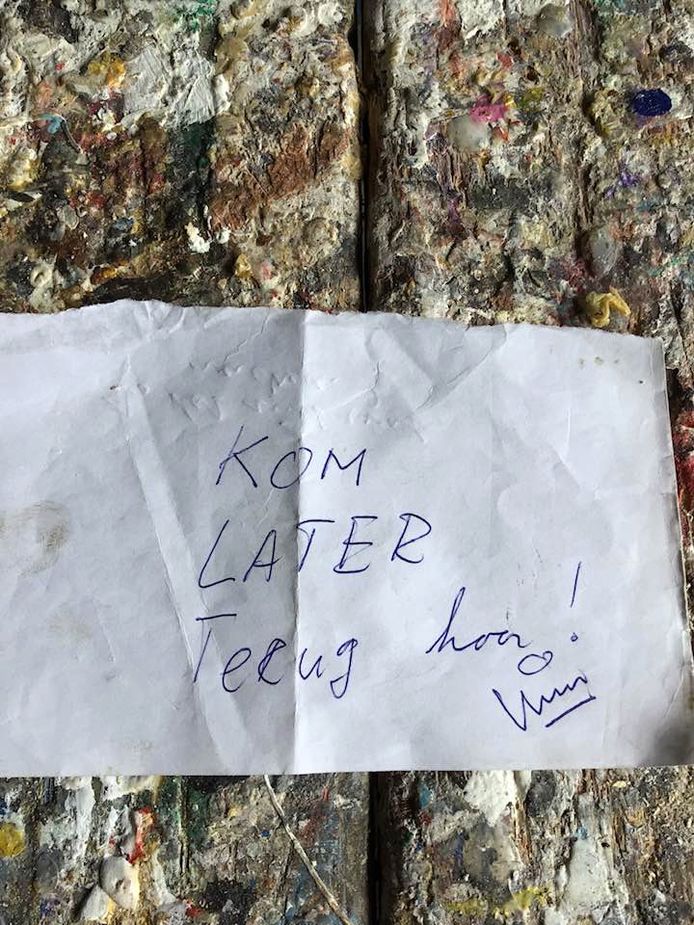 KOM
LATER
Terug hoor!